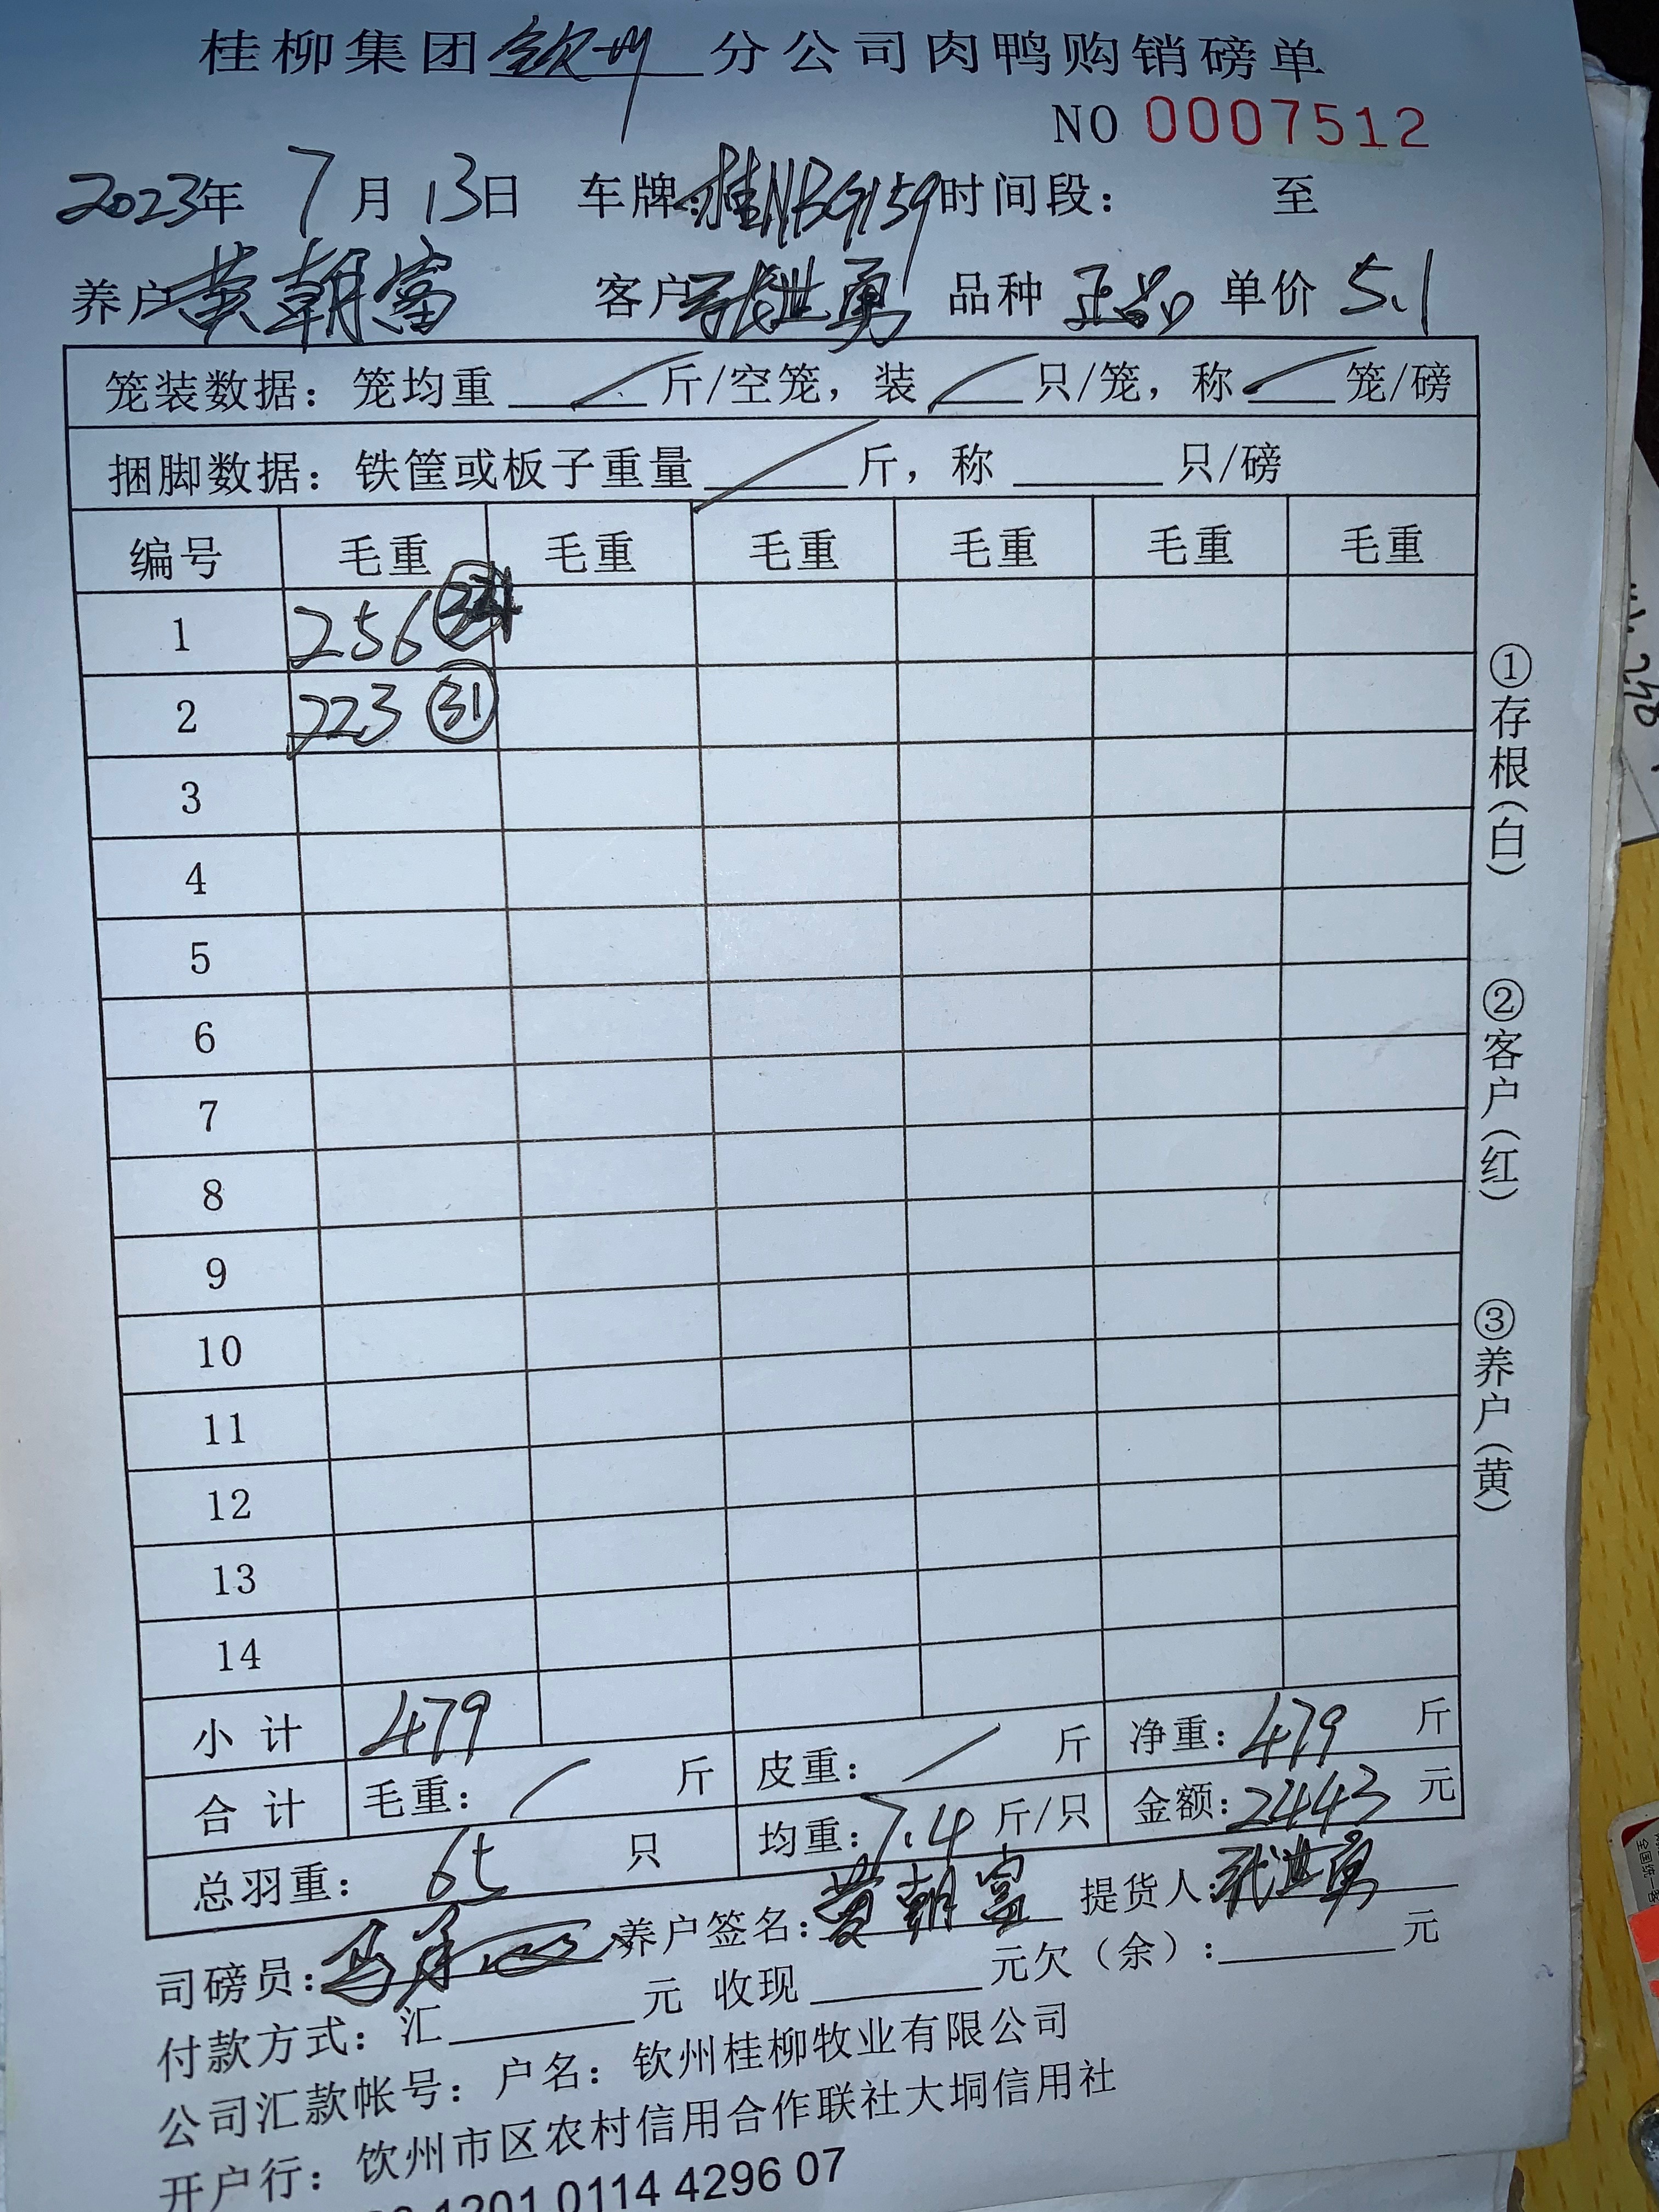 桂柳集团钦州分公司肉鸭购销磅单
NO 0007512
2023年 7月 13日 车牌:桂NBG159 时间段: 至
养户 黄朝富 客户 张世勇 品种 正品 单价 5.1
笼装数据:笼均重 斤/空笼,装 只/笼,称 笼/磅
捆脚数据:铁筐或板子重量 斤,称 只/磅
编号 毛重 毛重 毛重 毛重 毛重 毛重
1 256
2 223 ㉛
3
4
5
6
7
8
9
10
11
12
13
14
小计 479
合计 毛重: / 斤 皮重: / 斤 净重: 479 斤
总羽重: 65 只 均重: 7.4 斤/只 金额: 2443 元
司磅员: 养户签名: 黄朝富 提货人: 张世勇
付款方式:汇 元 收现 元欠(余): 元
公司汇款帐号:户名:钦州桂柳牧业有限公司
开户行:钦州市区农村信用合作联社大垌信用社
1201 0114 4296 07
①存根(白)
②客户(红)
③养户(黄)